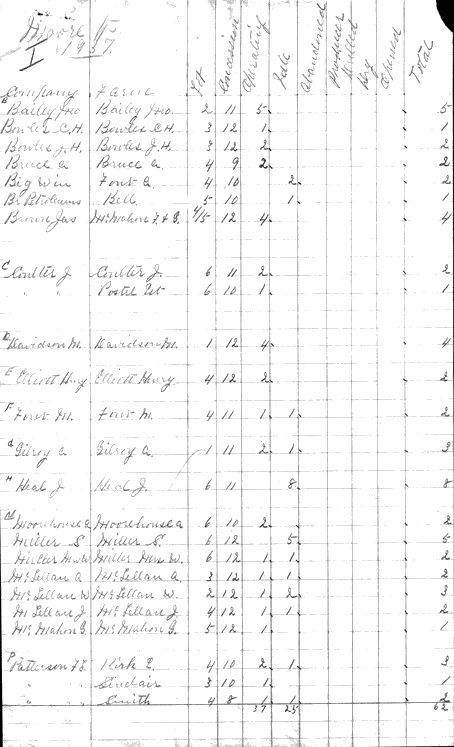 Moore Tp.
I 1937.
Company Farm Lot Concession Operating Idle Abandoned Producer Drilled Dry Opened Total
B
Bailey Jno Bailey Jno. 2 11 5. 5
Bowles C.H. Bowles C.H. 3 12 1. 1
Bowles J.H. Bowles J.H. 3 12 2. 2
Bruce A Bruce A. 4 9 2. 2
Big Win Font A. 4 10 2. 2
Br Petroleums Bell 5 10 1. 1
Brown Jas McMahon F. & G. 4/5 12 4. 4
C Coulter J Coulter J. 6 11 2. 2
" " Postel Est 6 10 1. 1
D Davidson M. Davidson M. 1 12 4. 4
E Elliott Henry Elliott Henry 4 12 2. 2
F Font M. Font M. 4 11 1. 1. 2
G Gilroy A Gilroy A. 1 11 2. 1. 3
H Heal J Heal J. 6 11 8. 8
M
Moorehouse A Moorehouse A 6 10 2. 2
Miller S. Miller S. 6 12 5. 5
Miller Mrs W. Miller Mrs W. 6 12 1. 1. 2
McLellan A McLellan A. 3 12 1. 1. 2
McLellan W. McLellan W. 2 12 1. 2. 3
McLellan J McLellan J. 4 12 1. 1. 2
McMahon G. McMahon G. 5 12 1. 1
P Patterson F.L. Kirk E. 4 10 2. 1. 3
" Sinclair 3 10 1. 1
" Smith 4 8 1. 1. 2
37 25 62